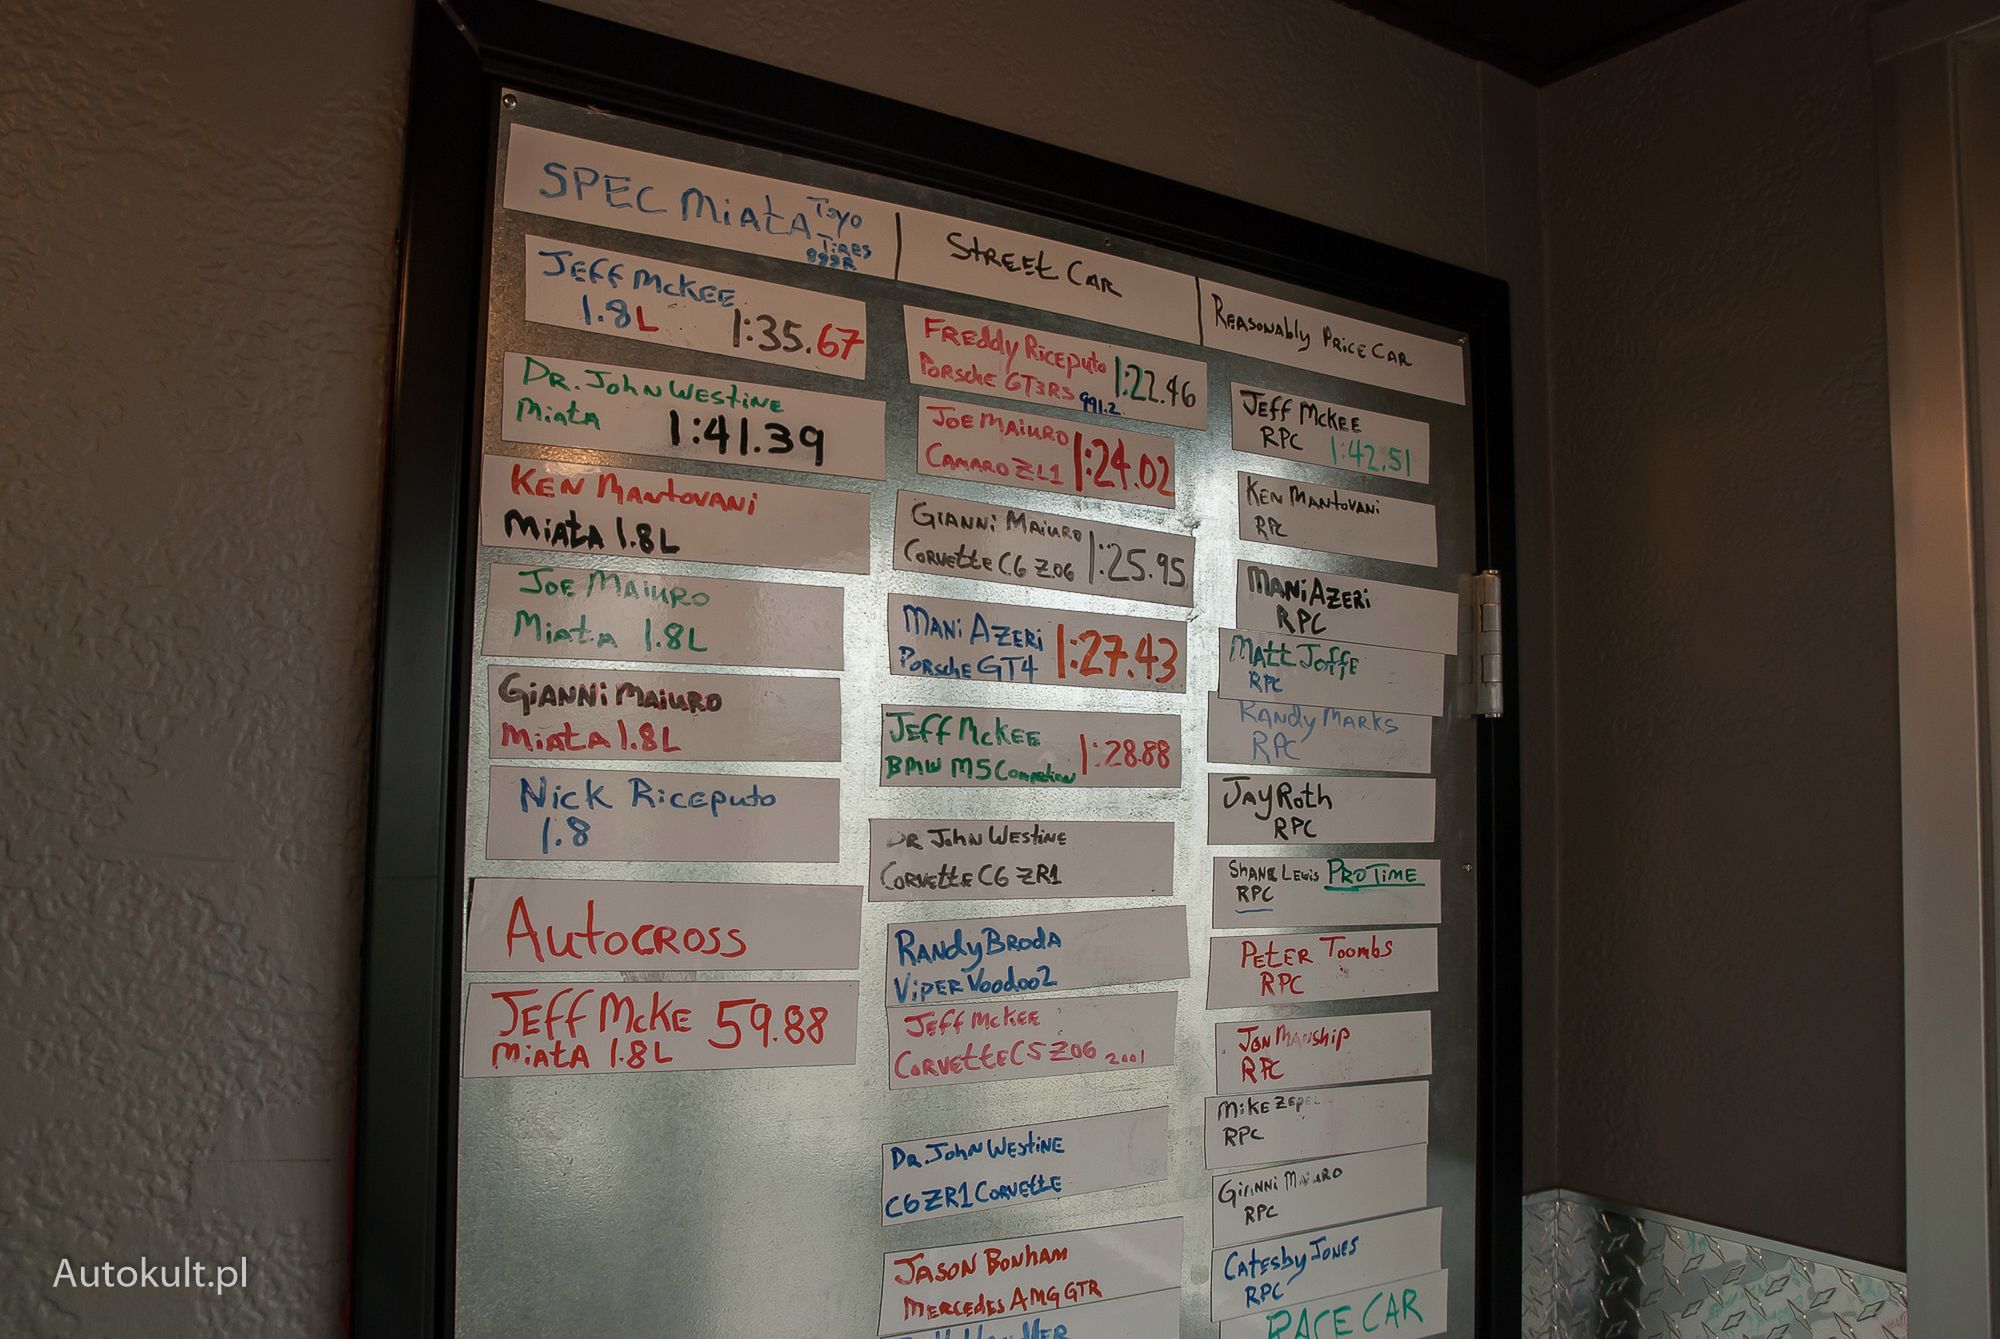 SPEC MiAtA Toyo
Tires
888R
JEFF McKEE
1.8L 1:35.67
DR. John WEStiNE
MiAtA 1:41.39
KEN MANtOVANi
MiAtA 1.8L
JOE MAiURO
MiAtA 1.8L
GiANNi MAiURO
MiAtA 1.8L
Nick Riceputo
1.8
AutOCROSS
JEFF McKE 59.88
MiAtA 1.8L
StREEt CAR
FREddy Riceputo 1:22.46
PORSchE GT3RS 991.2
JOE MAiURO 1:24.02
CAMARO ZL1
GiANNi MAiURO
CORVEttE C6 Z06 1:25.95
MANi AZERi 1:27.43
PORSchE GT4
JEFF McKEE 1:28.88
BMW M5 Competion
DR John WEStiNE
CORVEttE C6 ZR1
RANdy BROdA
ViPER Voodoo2
JEFF McKEE
CORVEttE C5 Z06 2001
DR. John WEStiNE
C6 ZR1 CORVEttE
JASON BONhAM
MERCEdES AMG GTR
REASONAbly PRiCE CAR
JEFF McKEE
RPC 1:42.51
KEN MANtOVANi
RPC
MANi AZERi
RPC
MAtt JoffE
RPC
RANdy MARKS
RPC
JAy ROth
RPC
ShANE LEwis PRO TiME
RPC
PEtER Toombs
RPC
JON MANShip
RPC
MiKE ZEPEL
RPC
GiANNi MAiURO
RPC
CAtEsby JONES
RPC
RACE CAR
Autokult.pl